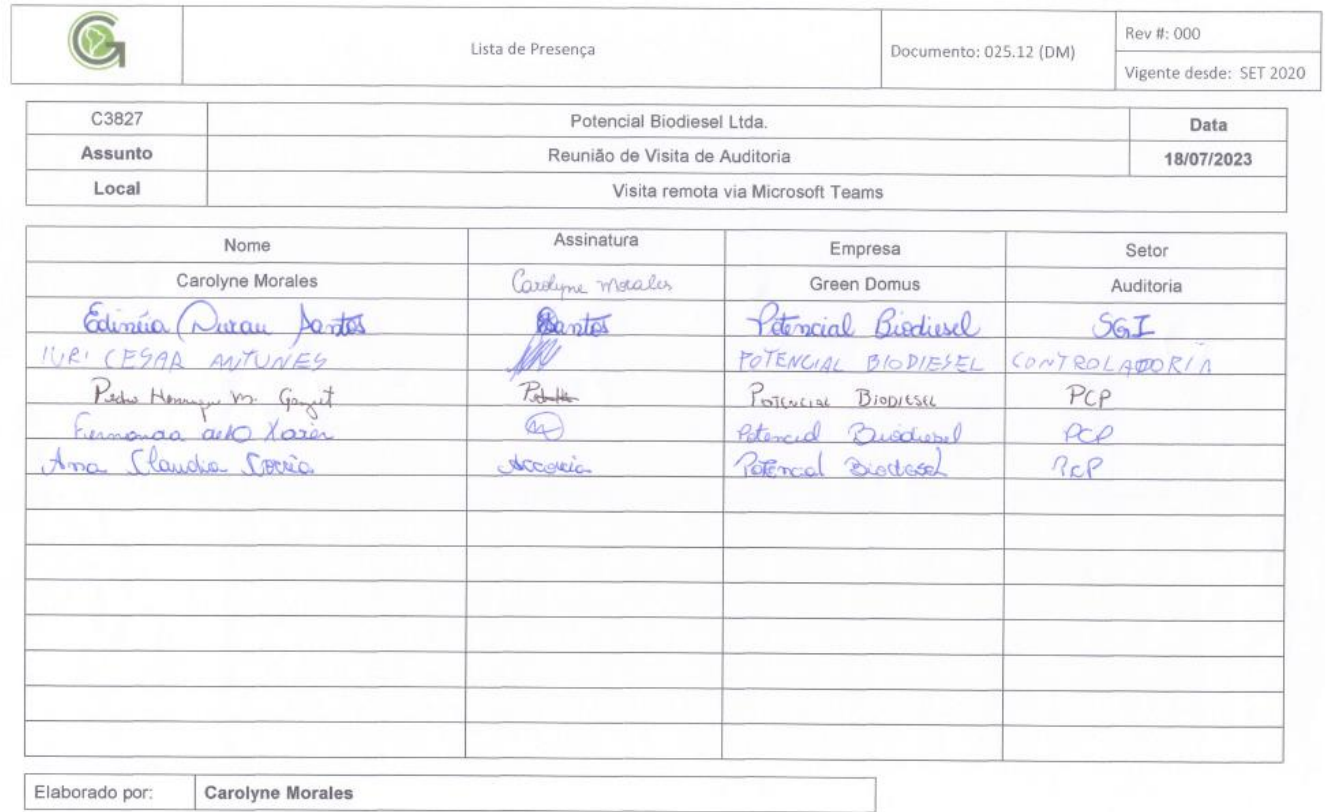 Lista de Presença Documento: 025.12 (DM) Rev #: 000
Vigente desde: SET 2020
C3827 Potencial Biodiesel Ltda. Data
Assunto Reunião de Visita de Auditoria 18/07/2023
Local Visita remota via Microsoft Teams
Nome Assinatura Empresa Setor
Carolyne Morales Carolyne Morales Green Domus Auditoria
Edinéia Durau Santos Santos Potencial Biodiesel SGI
IURI CESAR ANTUNES POTENCIAL BIODIESEL CONTROLADORIA
Pedro Henrique M. POTENCIAL BIODIESEL PCP
Xavier Potencial Biodiesel PCP
Ana Claudia Potencial Biodiesel PCP
Elaborado por: Carolyne Morales